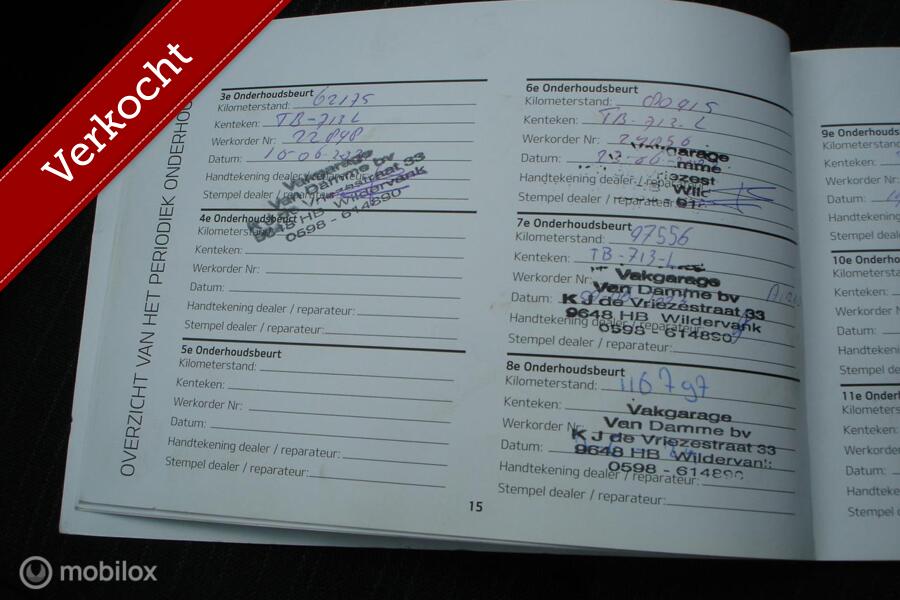 Verkocht
OVERZICHT VAN HET PERIODIEK ONDERHO
3e Onderhoudsbeurt
Kilometerstand: 62175
Kenteken: TB-713L
Werkorder Nr: 22848
Datum: 16-06-
Handtekening dealer / reparateur:
Stempel dealer / reparateur:
Vakgarage
Van Damme bv
K J de Vriezestraat 33
9648 HB Wildervank
0598 - 614890
4e Onderhoudsbeurt
Kilometerstand:
Kenteken:
Werkorder Nr:
Datum:
Handtekening dealer / reparateur:
Stempel dealer / reparateur:
5e Onderhoudsbeurt
Kilometerstand:
Kenteken:
Werkorder Nr:
Datum:
Handtekening dealer / reparateur:
Stempel dealer / reparateur:
15
6e Onderhoudsbeurt
Kilometerstand: 80915
Kenteken: TB-713-L
Werkorder Nr:
Datum:
Handtekening dealer / reparateur:
Stempel dealer / reparateur:
7e Onderhoudsbeurt
Kilometerstand: 97556
Kenteken: TB-713-L
Werkorder Nr:
Datum:
Handtekening dealer / reparateur:
Stempel dealer / reparateur:
Vakgarage
Van Damme bv
K J de Vriezestraat 33
9648 HB Wildervank
0598 - 614890
8e Onderhoudsbeurt
Kilometerstand: 116797
Kenteken:
Werkorder Nr:
Datum:
Handtekening dealer / reparateur:
Stempel dealer / reparateur:
Vakgarage
Van Damme bv
K J de Vriezestraat 33
9648 HB Wildervank
0598 - 614890
9e Onderhouds
Kilometerstand
Kenteken:
Werkorder Nr:
Datum:
Handtekening
Stempel dealer
10e Onder
Kilometersta
Kenteken:
Werkorder
Datum:
Handteken
Stempel de
11e Onder
Kilometers
Kenteken:
Werkorde
Datum:
Handteke
Stempel
mobilox